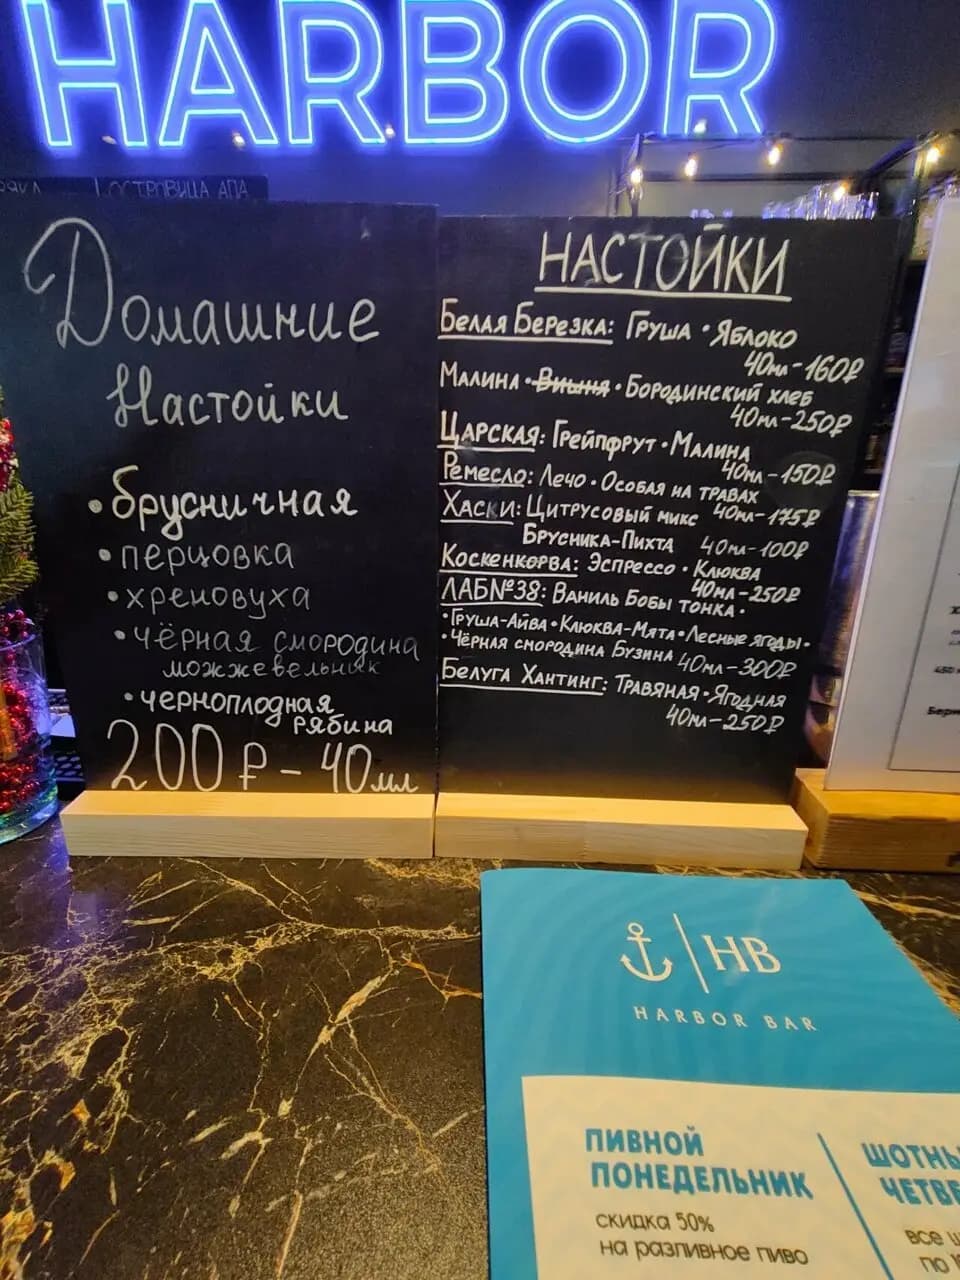 HARBOR
ОСТРОВИЦА АПА
Домашние
Настойки
• брусничная
• перцовка
• хреновуха
• чёрная смородина
можжевельник
• черноплодная
рябина
200 ₽ - 40 мл
НАСТОЙКИ
Белая Березка: Груша • Яблоко
40мл-160₽
Малина • Вишня • Бородинский хлеб
40мл-250₽
Царская: Грейпфрут • Малина
40мл-150₽
Ремесло: Лечо • Особая на травах
40мл-175₽
Хаски: Цитрусовый микс
Брусника-Пихта 40мл-100₽
Коскенкорва: Эспрессо • Клюква
40мл-250₽
ЛАБ№38: Ваниль Бобы тонка •
• Груша-Айва • Клюква-Мята • Лесные ягоды •
• Чёрная смородина Бузина 40мл-300₽
Белуга Хантинг: Травяная • Ягодная
40мл-250₽
HB
HARBOR BAR
ПИВНОЙ
ПОНЕДЕЛЬНИК
скидка 50%
на разливное пиво
ШОТНЫ
ЧЕТВЕ
все
по